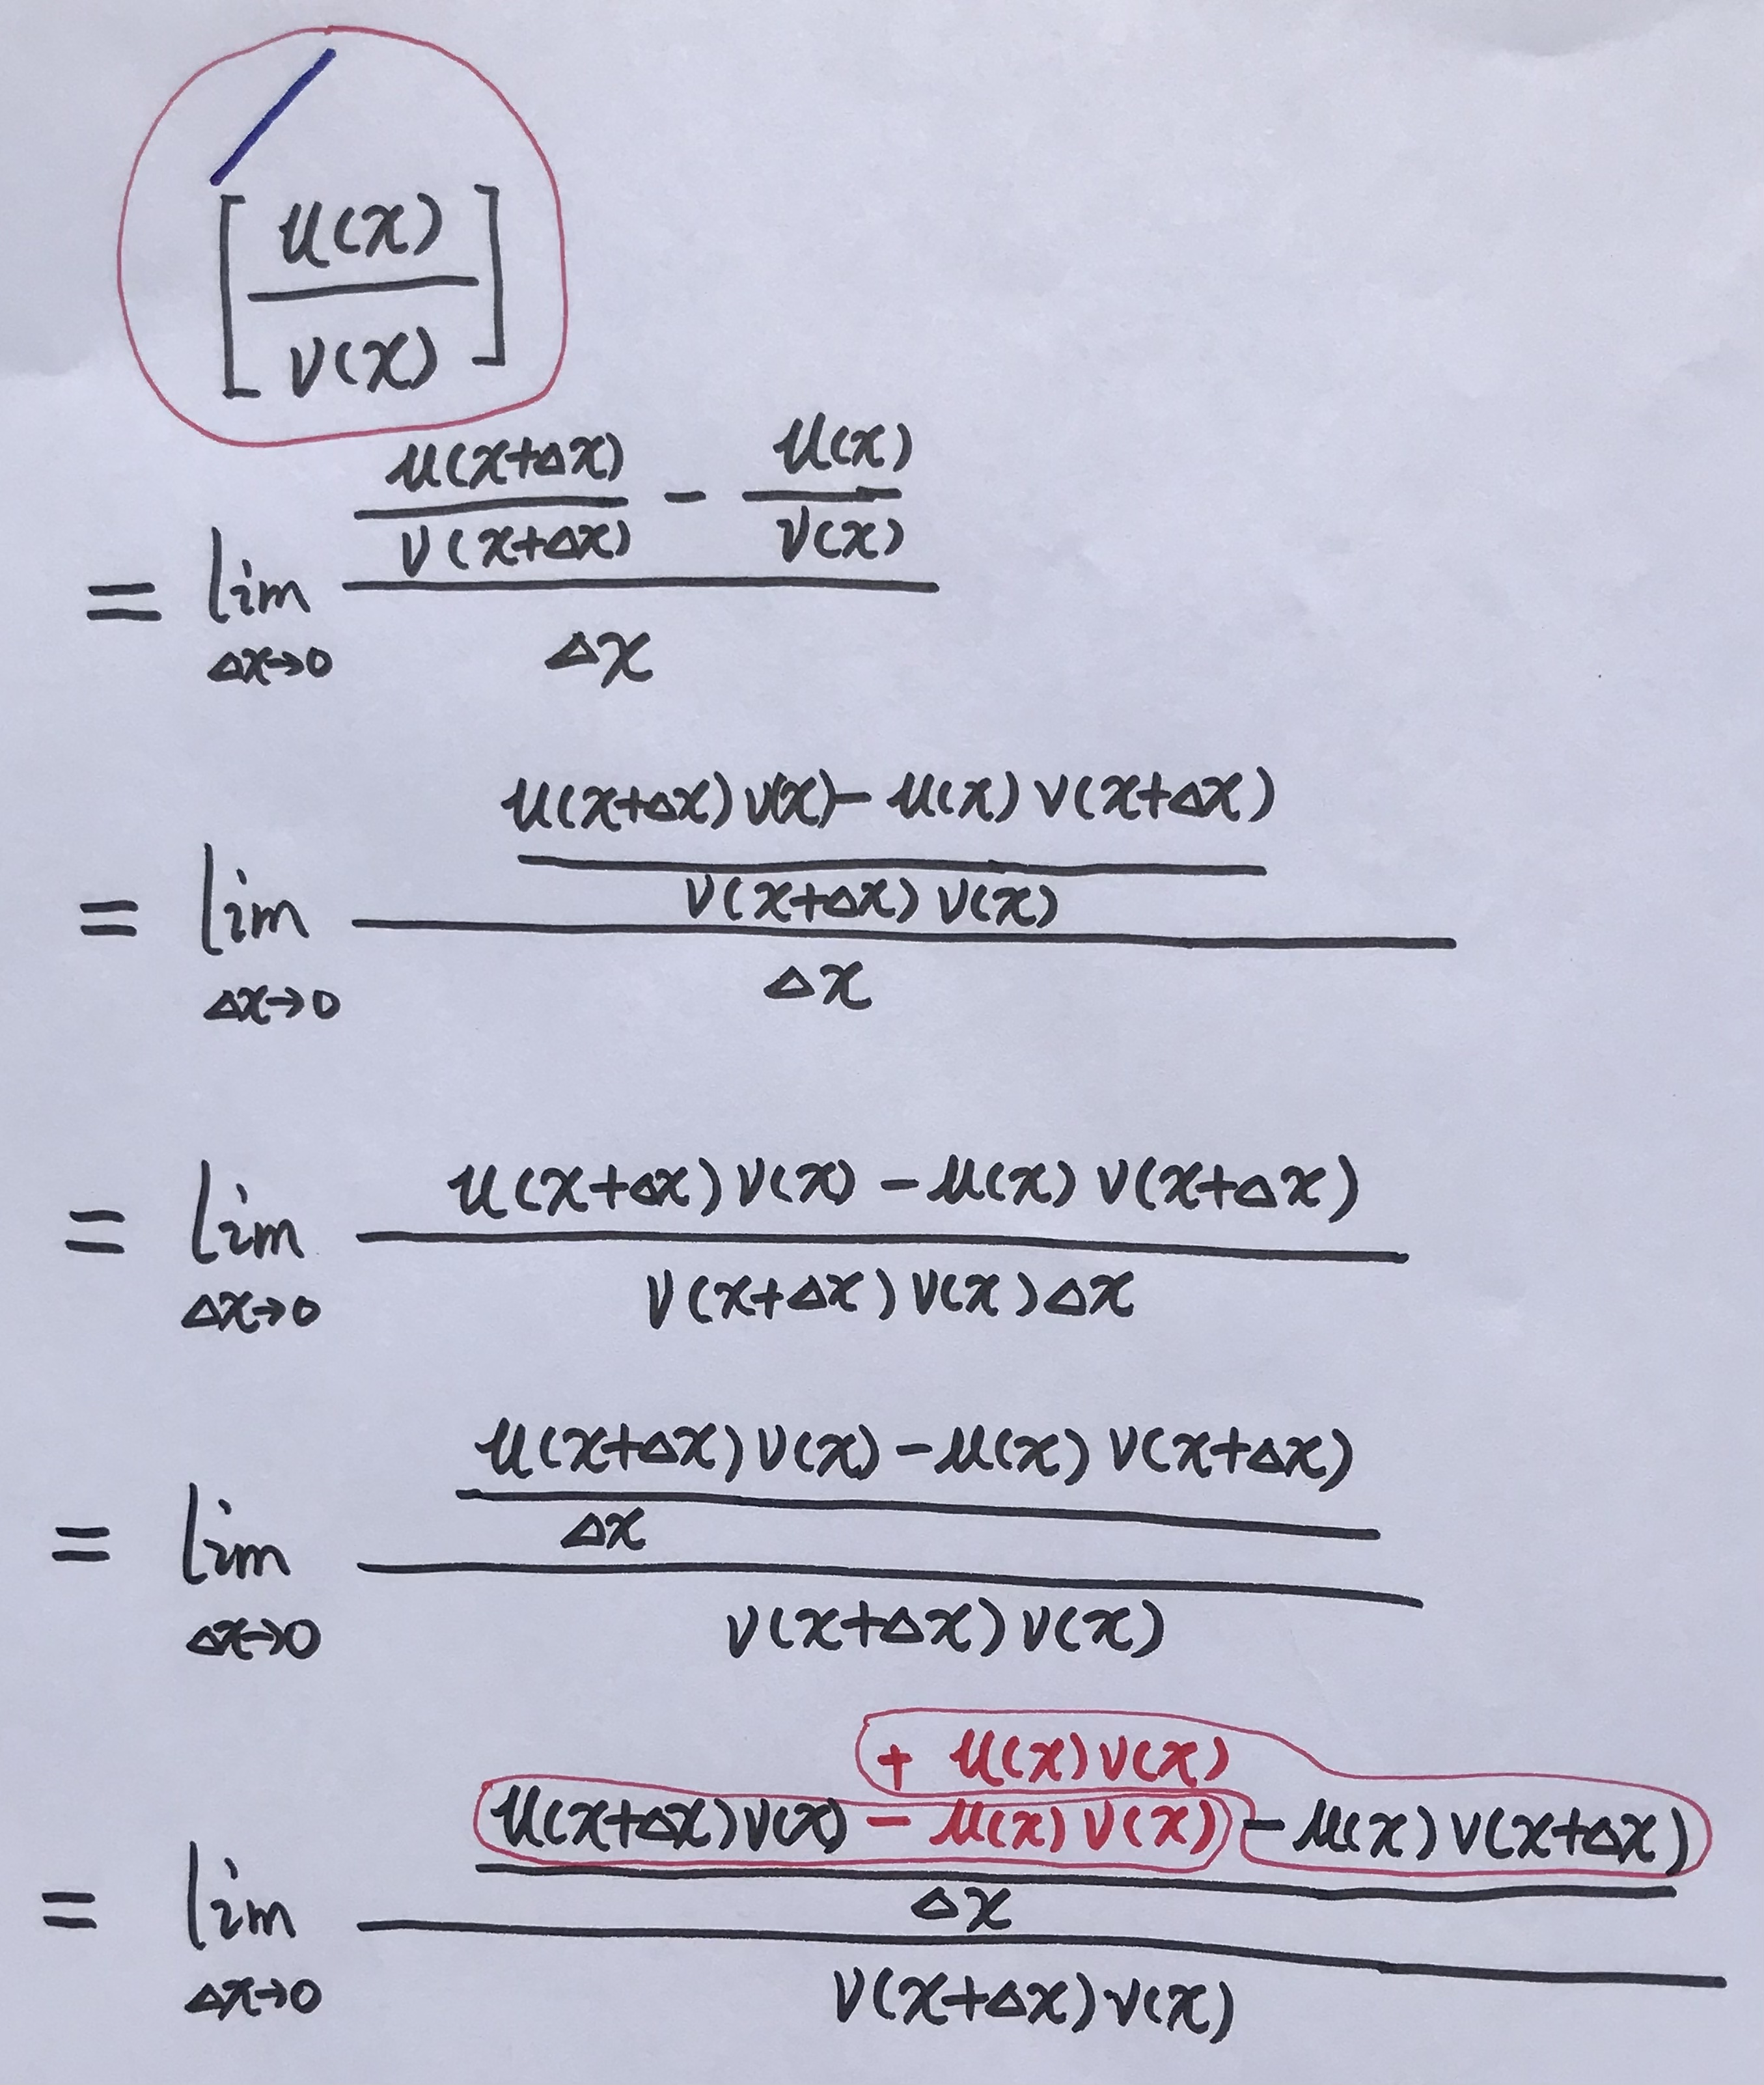 [u(x)/v(x)]′
= lim Δx→0 (u(x+Δx)/v(x+Δx) − u(x)/v(x)) / Δx
= lim Δx→0 ((u(x+Δx)v(x) − u(x)v(x+Δx)) / (v(x+Δx)v(x))) / Δx
= lim Δx→0 (u(x+Δx)v(x) − u(x)v(x+Δx)) / (v(x+Δx)v(x)Δx)
= lim Δx→0 ((u(x+Δx)v(x) − u(x)v(x+Δx)) / Δx) / (v(x+Δx)v(x))
+ u(x)v(x)
= lim Δx→0 ((u(x+Δx)v(x) − u(x)v(x) − u(x)v(x+Δx)) / Δx) / (v(x+Δx)v(x))